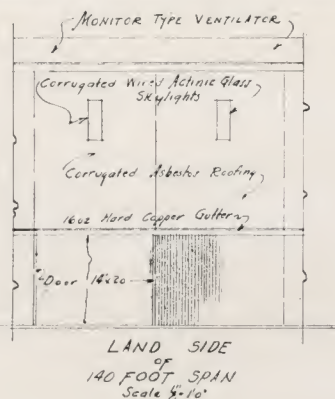 MONITOR TYPE VENTILATOR
Corrugated Wired Actinic Glass
Skylights
Corrugated Asbestos Roofing
16oz Hard Copper Gutter
Door 14'x20
LAND SIDE
OF
140 FOOT SPAN
Scale ⅛"=1'0"